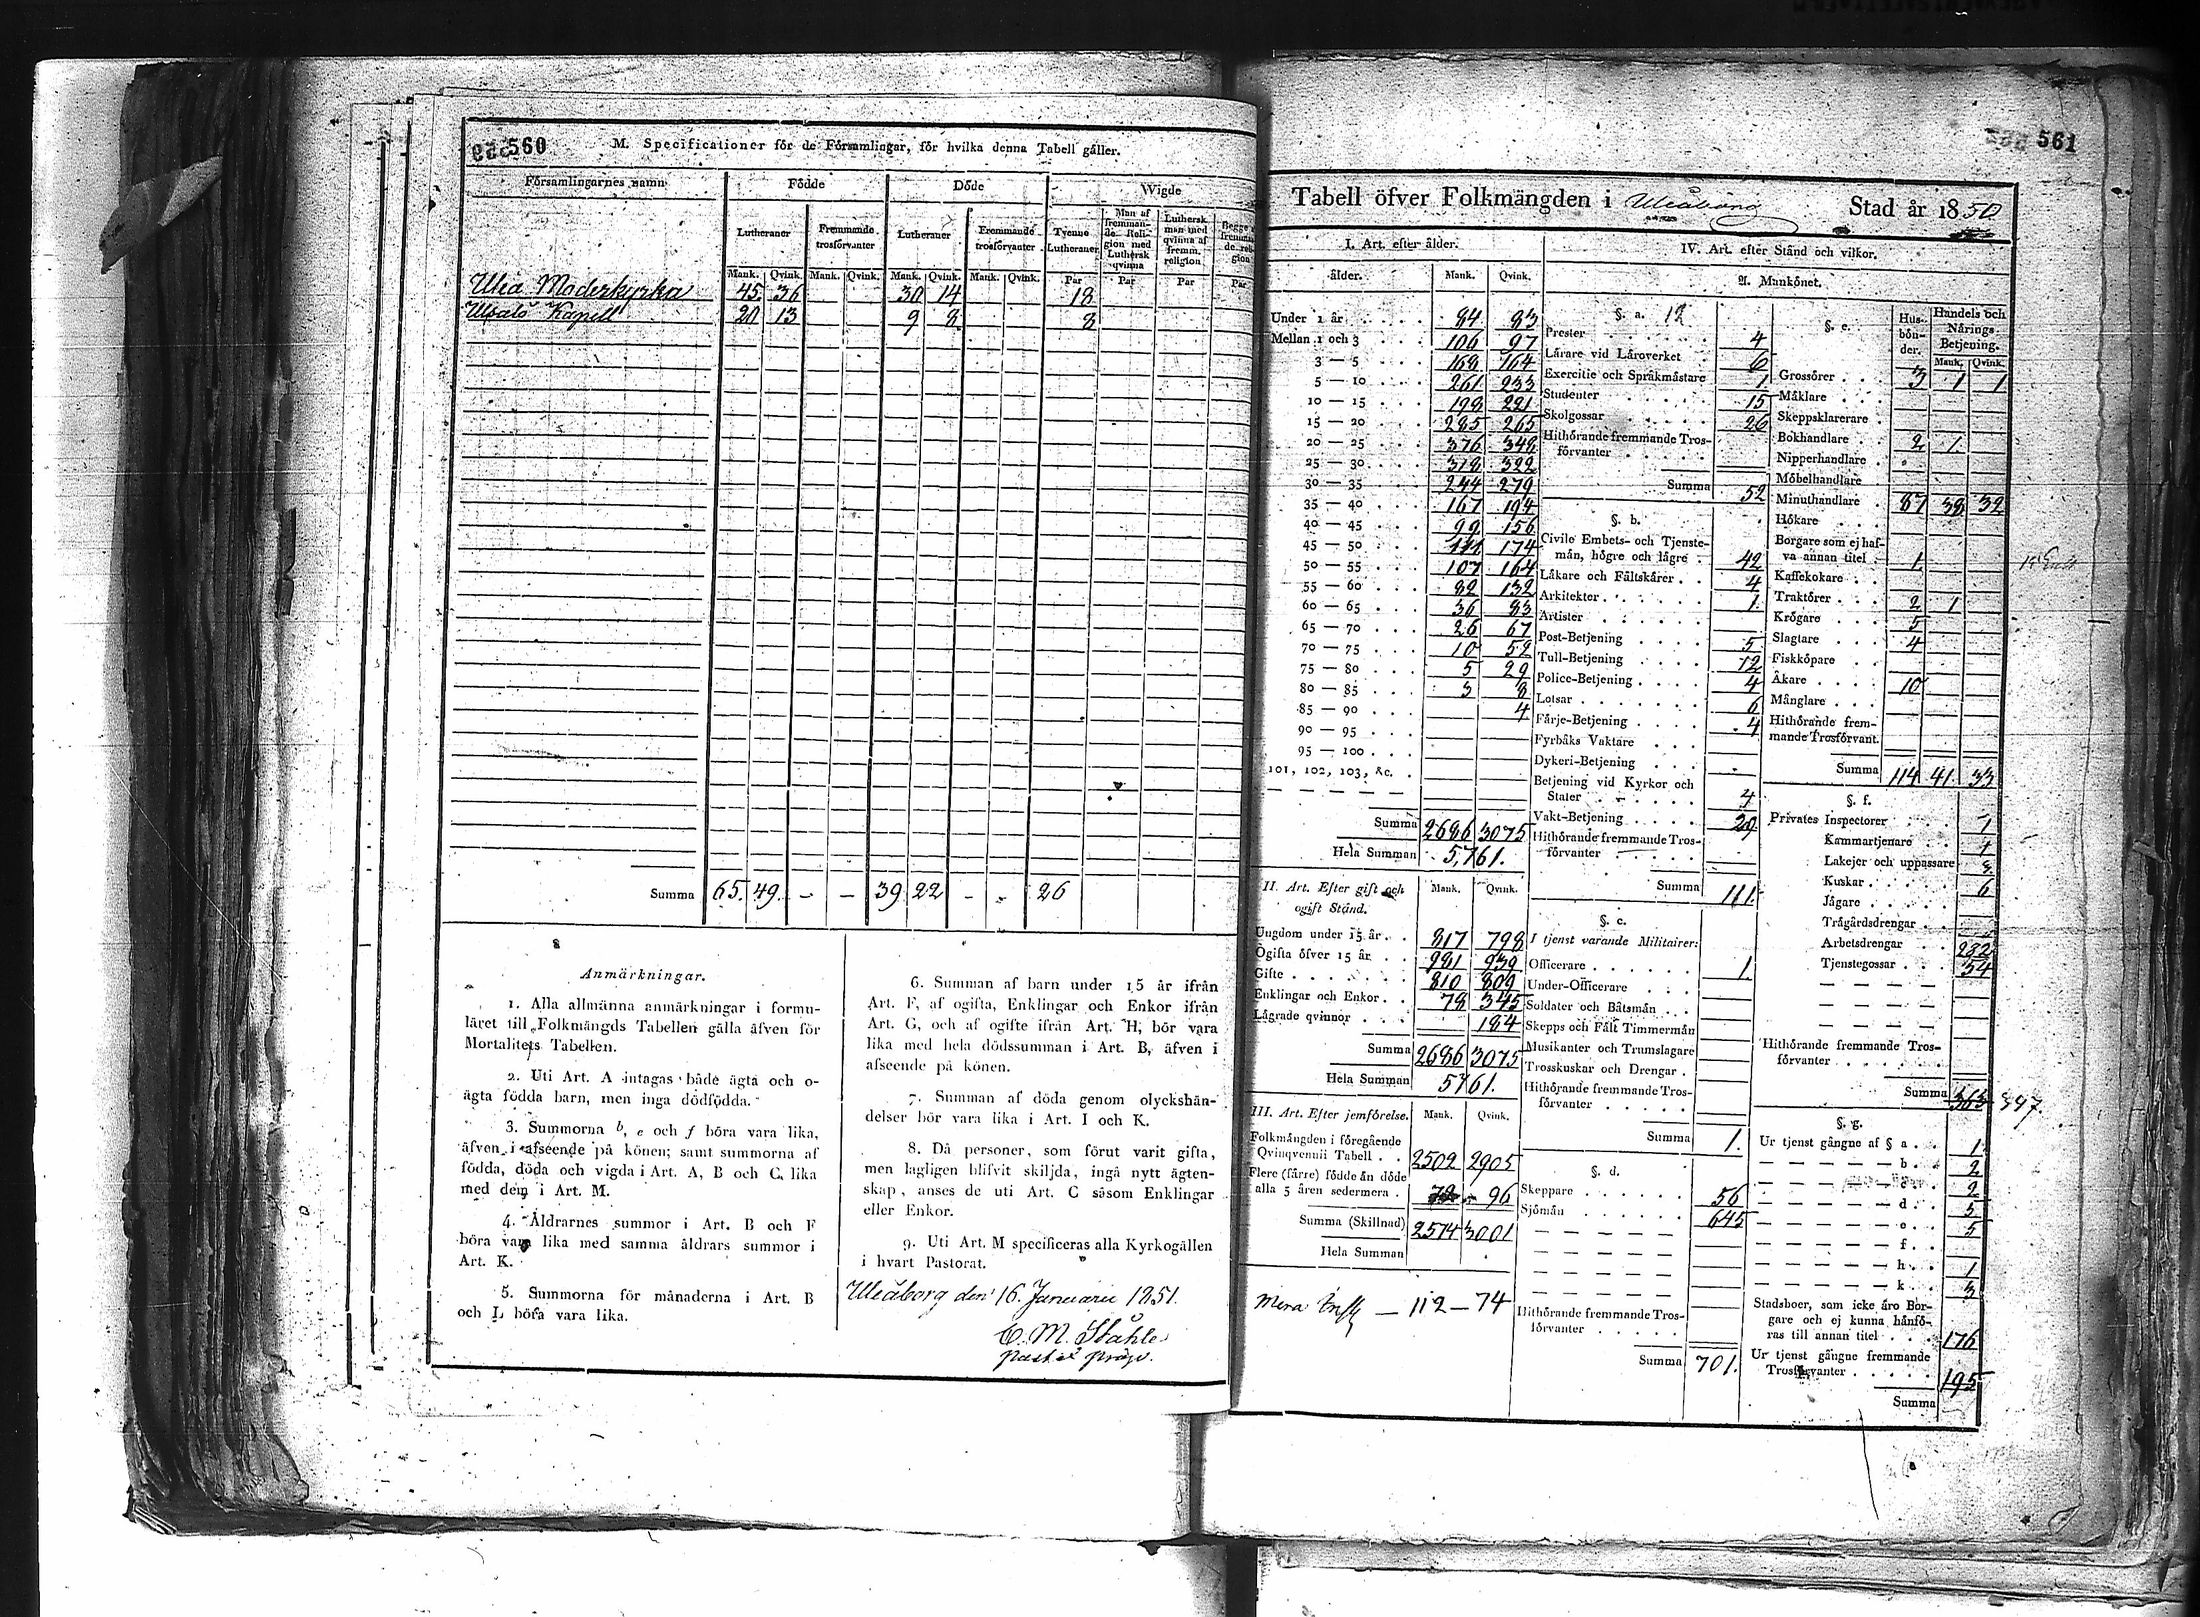 560
M. Specificationer för de Församlingar, för hvilka denna Tabell gäller.
Församlingarnes namn Födde Döde Wigde
Lutheraner Fremmande trosförvanter Lutheraner Fremmande trosförvanter Tvenne Lutheraner Man af fremmande Religion med Luthersk qvinna Luthersk man med qvinna af fremm. religion
Mank. Qvink. Mank. Qvink. Mank. Qvink. Mank. Qvink. Par Par Par Par
Ulea Moderkyrka 45 36 30 14 18
Ulealo Kapell 20 13 9 8 8
Summa 65. 49. - - 39 22 - - 26
Anmärkningar.
1. Alla allmänna anmärkningar i formu-
läret till Folkmängds Tabellen gälla äfven för
Mortalitets Tabellen.
2. Uti Art. A intagas både ägta och o-
ägta födda barn, men inga dödfödda.
3. Summorna b, e och f böra vara lika,
äfven i afseende på könen; samt summorna af
födda, döda och vigda i Art. A, B och C, lika
med dem i Art. M.
4. Åldrarnes summor i Art. B och F
böra vara lika med samma åldrars summor i
Art. K.
5. Summorna för månaderna i Art. B
och L böra vara lika.
6. Summan af barn under 15 år ifrån
Art. F, af ogifta, Enklingar och Enkor ifrån
Art. G, och af ogifte ifrån Art. H, bör vara
lika med hela dödssumman i Art. B, äfven i
afseende på könen.
7. Summan af döda genom olyckshän-
delser bör vara lika i Art. I och K.
8. Då personer, som förut varit gifta,
men lagligen blifvit skiljda, ingå nytt ägten-
skap, anses de uti Art. C såsom Enklingar
eller Enkor.
9. Uti Art. M specificeras alla Kyrkogällen
i hvart Pastorat.
Uleåborg den 16. Januarii 1851.
C. M. Ståhle
561
Tabell öfver Folkmängden i Uleåborg Stad år 1850
I. Art. efter ålder.
ålder. Mank. Qvink.
Under 1 år 84 83
Mellan 1 och 3 106 97
3 — 5 168 164
5 — 10 261 233
10 — 15 198 221
15 — 20 285 265
20 — 25 376 348
25 — 30 318 322
30 — 35 244 279
35 — 40 167 194
40 — 45 99 156
45 — 50 111 174
50 — 55 107 164
55 — 60 82 132
60 — 65 36 83
65 — 70 26 67
70 — 75 10 52
75 — 80 5 29
80 — 85 3 8
85 — 90 4
90 — 95
95 — 100
101, 102, 103, &c.
Summa 2686 3075
Hela Summan 5,761.
II. Art. Efter gift och ogift Stånd. Mank. Qvink.
Ungdom under 15 år 817 798
Ogifta öfver 15 år 981 939
Gifte 810 809
Enklingar och Enkor 78 345
Lägrade qvinnor 184
Summa 2686 3075
Hela Summan 5761.
III. Art. Efter jemförelse. Mank. Qvink.
Folkmängden i föregående
Qvinqvennii Tabell 2502 2905
Flere (färre) födde än döde
alla 5 åren sedermera 72 96
Summa (Skillnad) 2574 3001
Hela Summan
Mera — 112 — 74
IV. Art. efter Stånd och vilkor.
A. Mankönet.
§. a. 12
Prester 4
Lärare vid Läroverket 6
Exercitie och Språkmästare 1
Studenter 15
Skolgossar 26
Hithörande fremmande Tros-
förvanter
Summa 52
§. b.
Civile Embets- och Tjenste-
män, högre och lägre 42
Läkare och Fältskärer 4
Arkitekter 1
Artister
Post-Betjening 5
Tull-Betjening 12
Police-Betjening 4
Lotsar 6
Färje-Betjening 4
Fyrbåks Vaktare
Dykeri-Betjening
Betjening vid Kyrkor och
Stater 4
Vakt-Betjening 29
Hithörande fremmande Tros-
förvanter
Summa 111.
§. c.
I tjenst varande Militairer:
Officerare 1.
Under-Officerare
Soldater och Båtsmän
Skepps och Fält Timmermän
Musikanter och Trumslagare
Trosskuskar och Drengar
Hithörande fremmande Tros-
förvanter
Summa 1.
§. d.
Skeppare 56
Sjömän 645
Hithörande fremmande Tros-
förvanter
Summa 701.
§. e. Hus-bönder. Handels och Närings Betjening.
Mank. Qvink.
Grossörer 3 1 1
Mäklare
Skeppsklarerare
Bokhandlare 2 1.
Nipperhandlare
Möbelhandlare
Minuthandlare 87 38 32
Hökare
Borgare som ej haf-
va annan titel 1.
Kaffekokare
Traktörer 2 1
Krögare 5
Slagtare 4
Fiskköpare
Åkare 10
Månglare
Hithörande frem-
mande Trosförvant.
Summa 114 41. 33
§. f.
Privates Inspectorer 1
Kammartjenare 1
Lakejer och uppassare 3
Kuskar 6
Jägare
Trägårdsdrengar
Arbetsdrengar 282
Tjenstegossar 54
Hithörande fremmande Tros-
förvanter
Summa 363 347.
§. g.
Ur tjenst gångne af § a 1.
b. 2
c. 2
d. 5
e. 5
f.
h. 1
k. 3
Stadsboer, som icke äro Bor-
gare och ej kunna hänfö-
ras till annan titel 176
Ur tjenst gångne fremmande
Trosförvanter
195
Summa